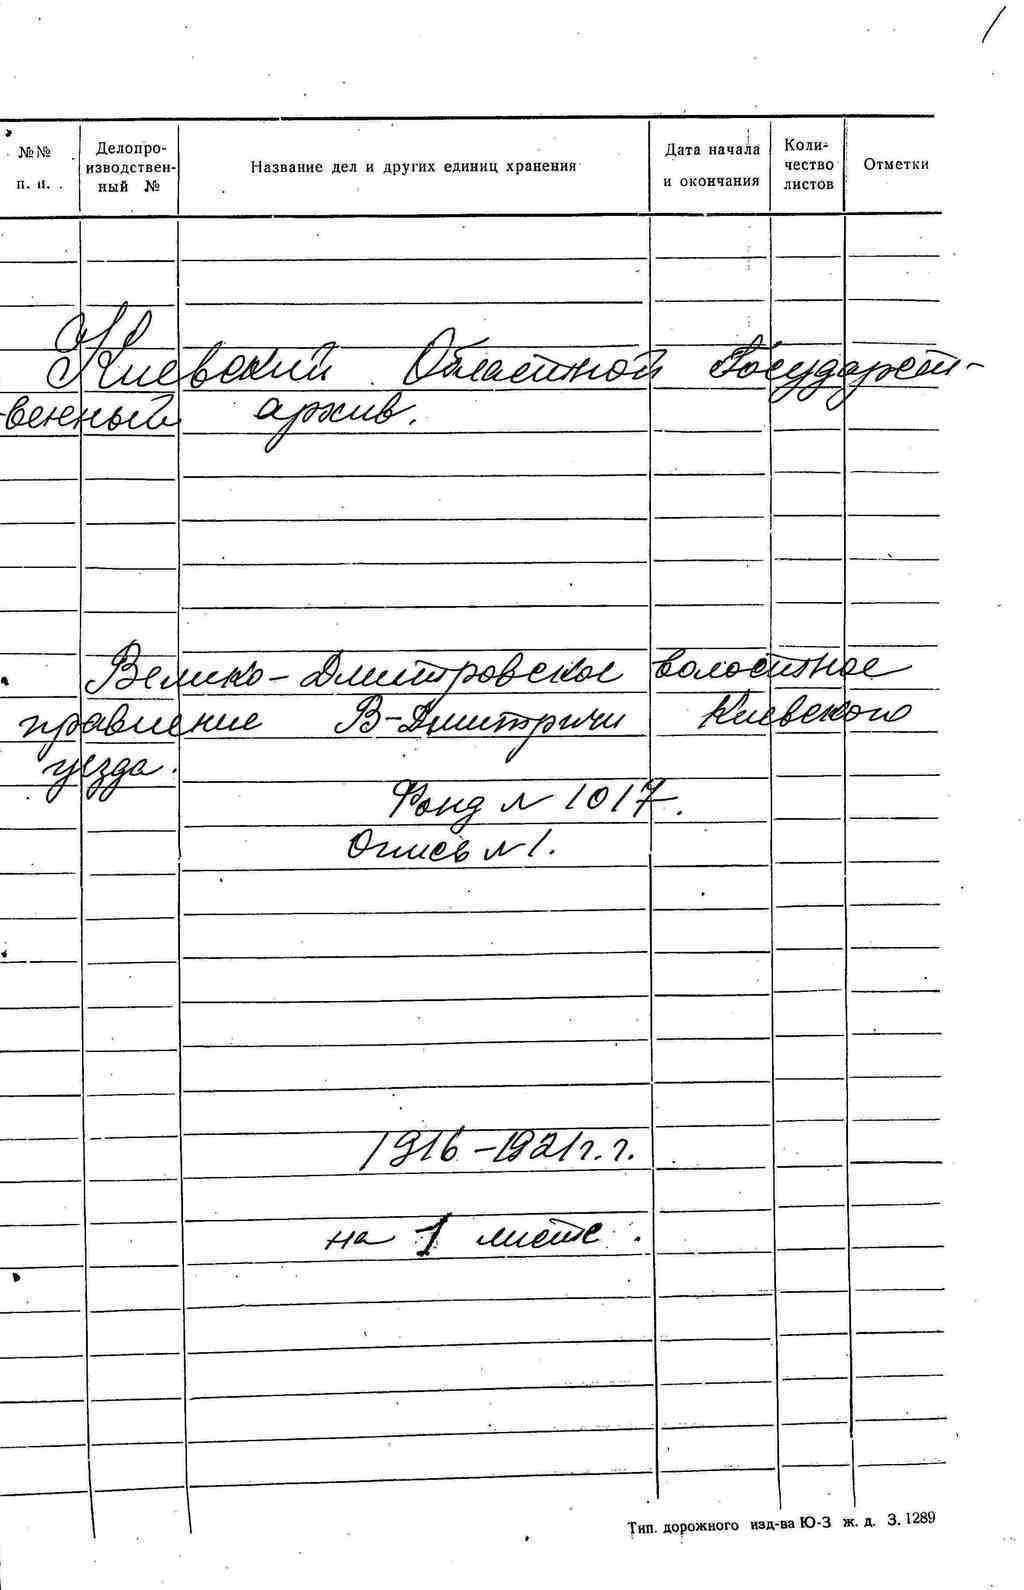 1
№№ п. п.
Делопро-
изводствен-
ный №
Название дел и других единиц хранения
Дата начала
и окончания
Коли-
чество
листов
Отметки
Киевский Областной Государст-
венный архив.
Велико-Дмитровское волостное
правление В-Дмитричи Киевского
уезда.
Фонд № 1017.
Опись № 1.
1916-1921 г.г.
на 1 листе.
Тип. дорожного изд-ва Ю-З ж. д. З. 1289